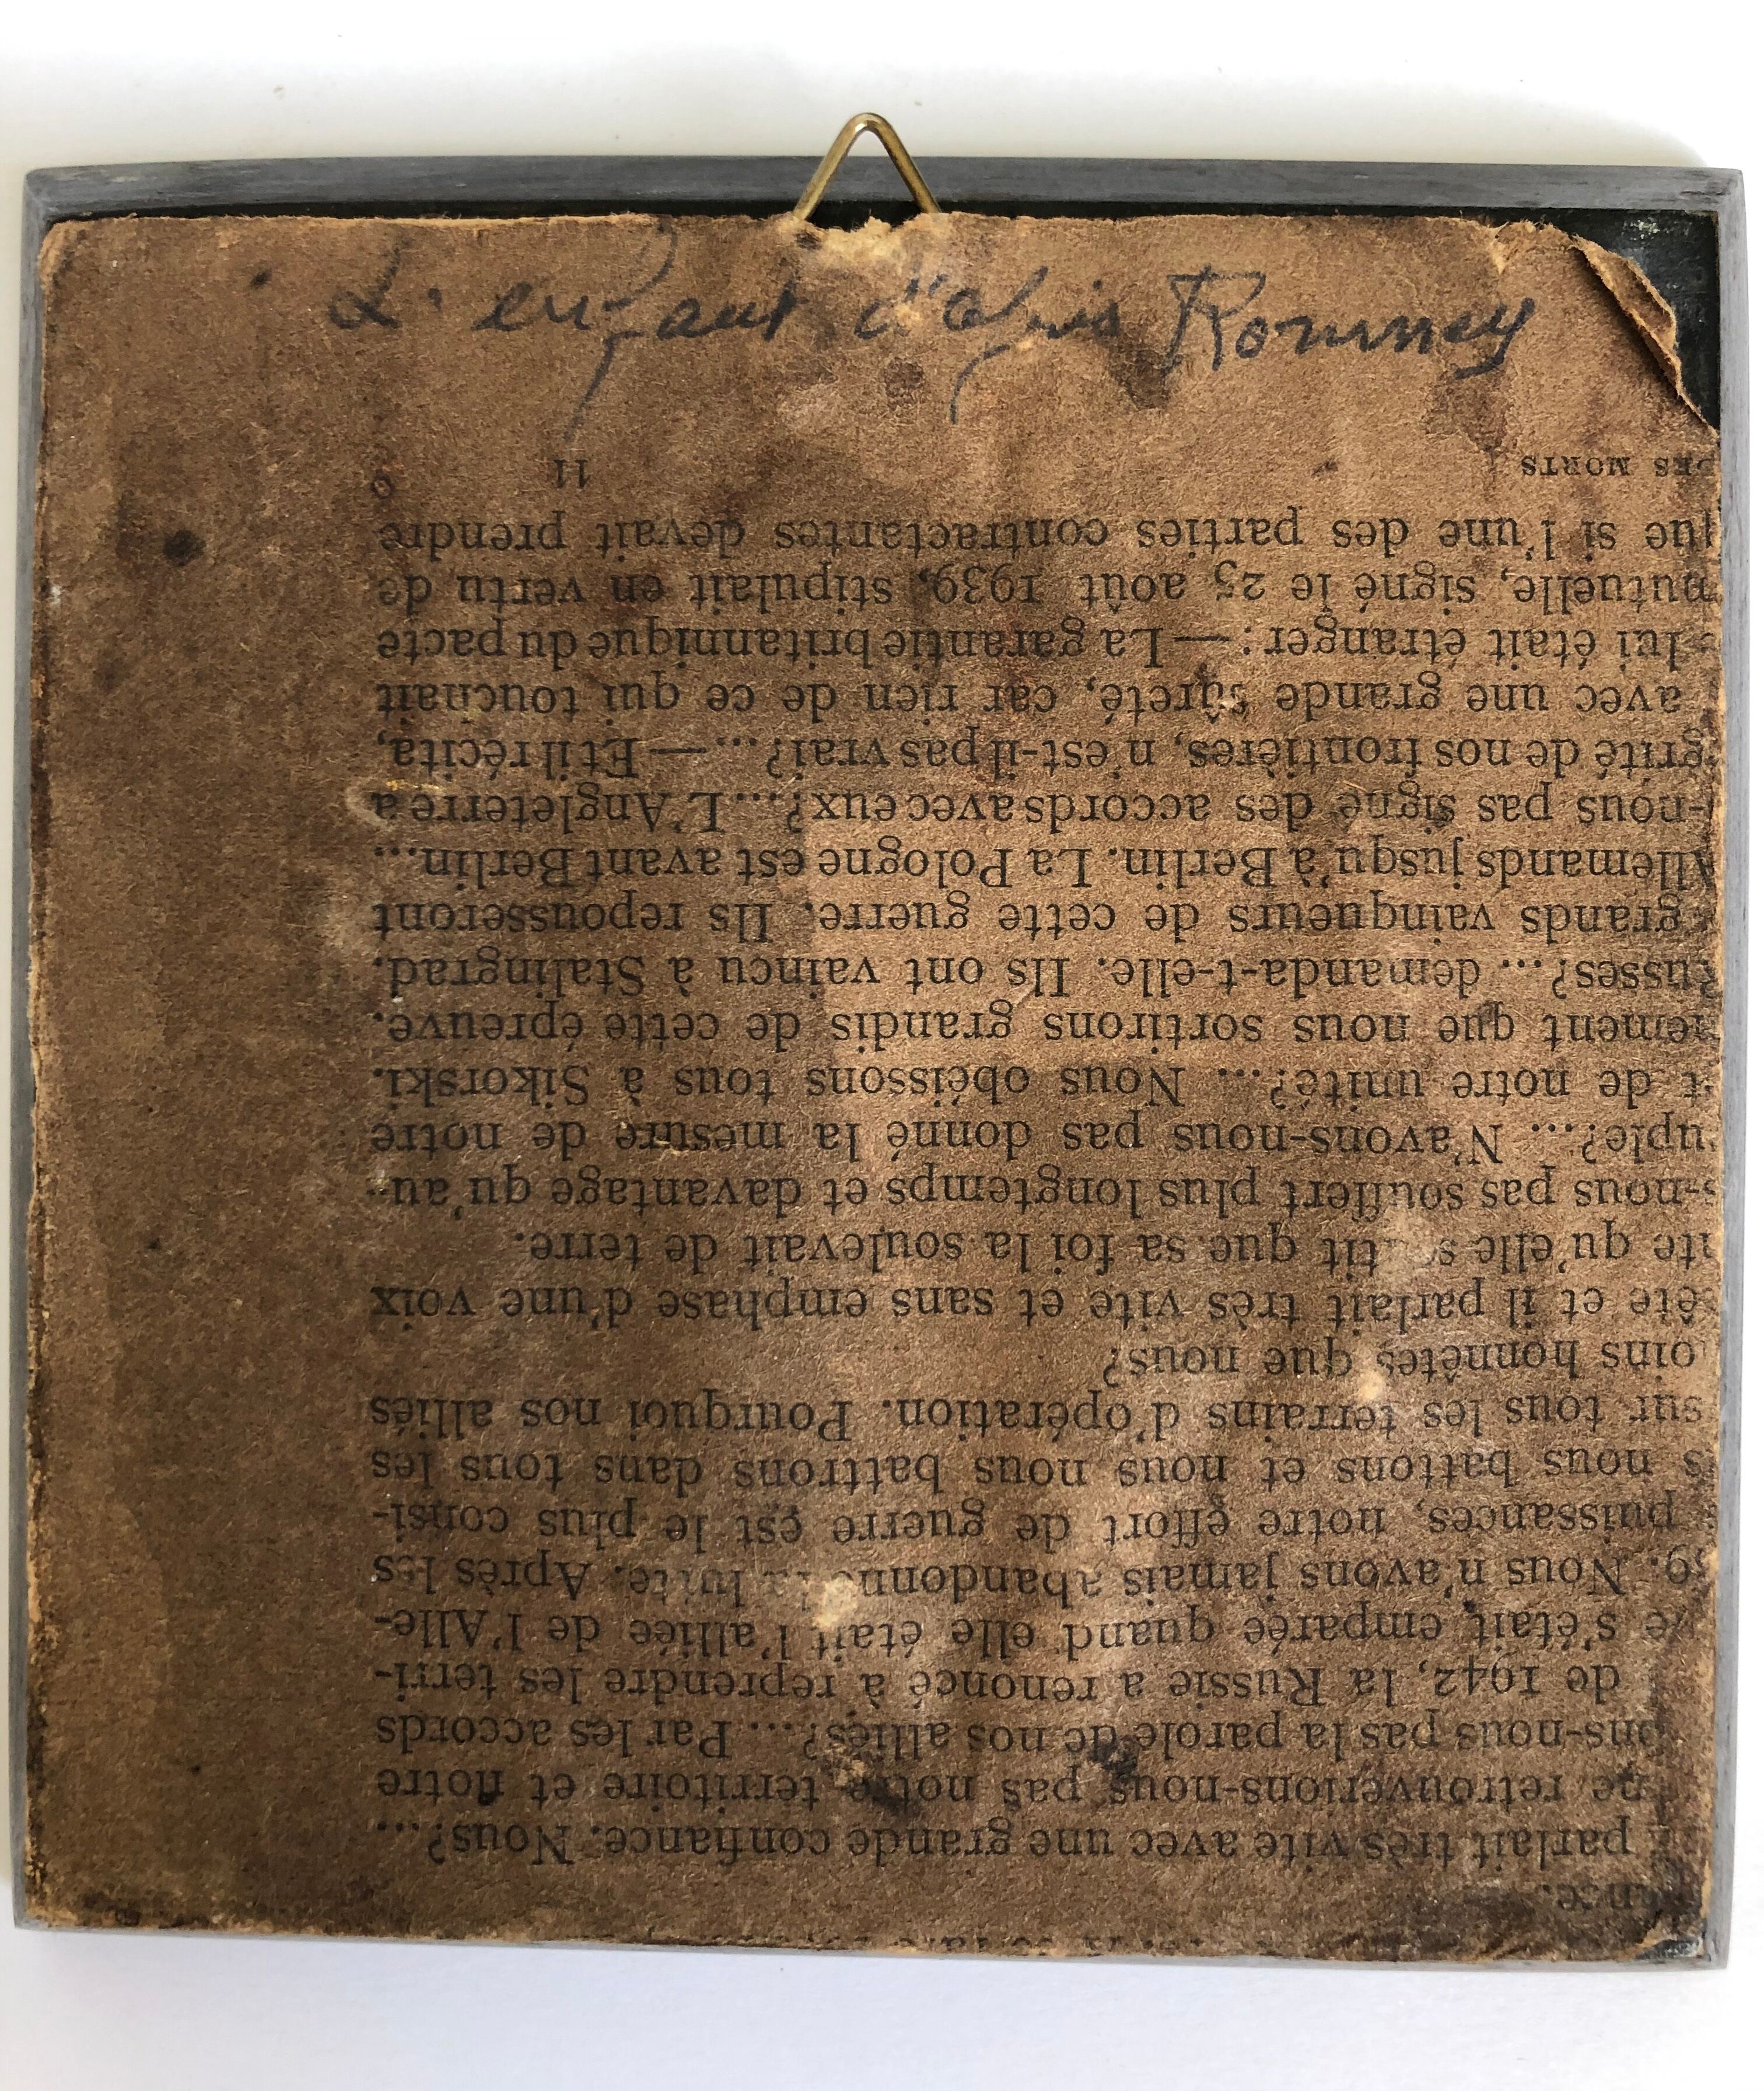 L'enfant d'après Romney
DES MORTS 11
que si l'une des parties contractantes devait prendre
mutuelle, signé le 25 août 1939, stipulait en vertu de
lui était étranger : — La garantie britannique du pacte
avec une grande sûreté, car rien de ce qui touchait
grité de nos frontières, n'est-il pas vrai?... — Et il récita,
-nous pas signé des accords avec eux?... L'Angleterre a
Allemands jusqu'à Berlin. La Pologne est avant Berlin...
grands vainqueurs de cette guerre. Ils repousseront
Russes?... demanda-t-elle. Ils ont vaincu à Stalingrad.
ement que nous sortirons grandis de cette épreuve.
t de notre unité?... Nous obéissons tous à Sikorski.
uple?... N'avons-nous pas donné la mesure de notre
s-nous pas souffert plus longtemps et davantage qu'au-
nte qu'elle sentit que sa foi la soulevait de terre.
ête et il parlait très vite et sans emphase d'une voix
oins honnêtes que nous?
sur tous les terrains d'opération. Pourquoi nos alliés
s nous battons et nous nous battrons dans tous les
puissances, notre effort de guerre est le plus consi-
39. Nous n'avons jamais abandonné la lutte. Après les
ve s'était emparée quand elle était l'alliée de l'Alle-
de 1942, la Russie a renoncé à reprendre les terri-
ons-nous pas la parole de nos alliés?... Par les accords
ne retrouverions-nous pas notre territoire et notre
parlait très vite avec une grande confiance. Nous?...
ance.